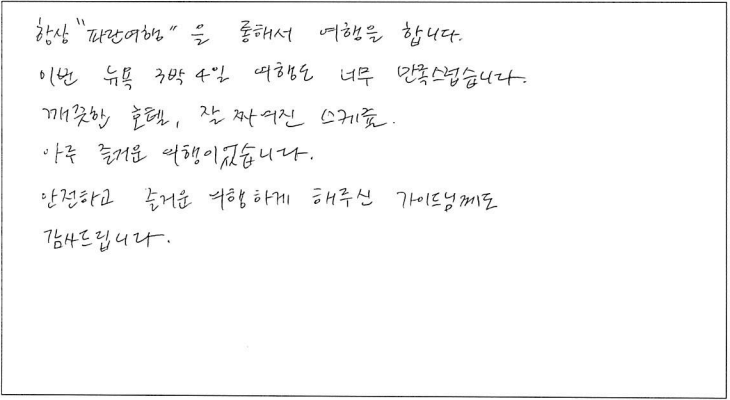 항상 "파란여행" 을 통해서 여행을 합니다.
이번 뉴욕 3박 4일 여행도 너무 만족스럽습니다.
깨끗한 호텔, 잘 짜여진 스케쥴.
아주 즐거운 여행이었습니다.
안전하고 즐거운 여행하게 해주신 가이드님께도
감사드립니다.